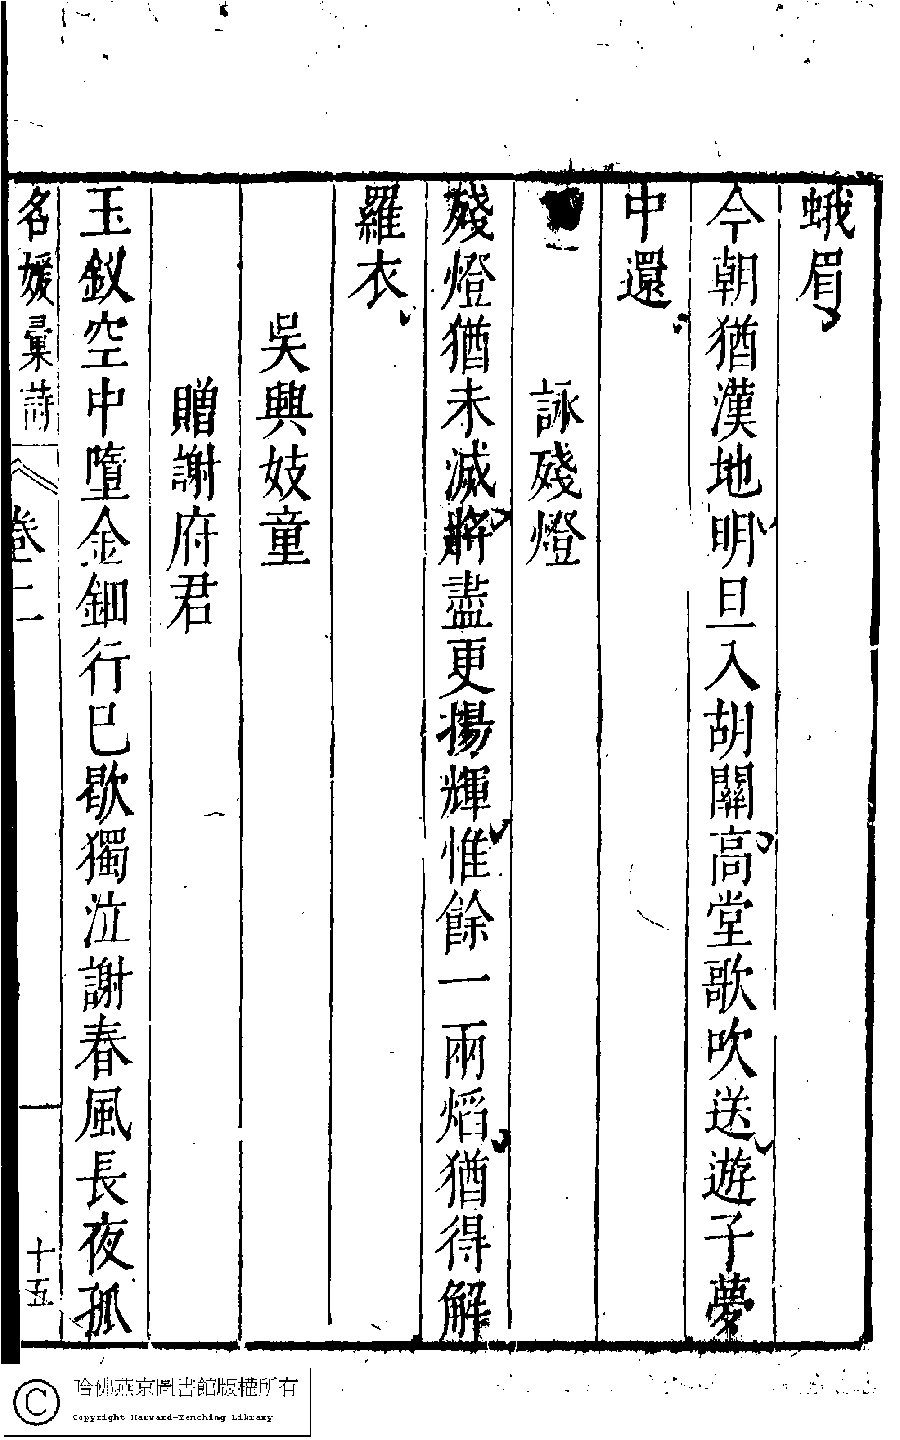 蛾眉
今朝猶漢地明旦入胡關高堂歌吹送遊子夢
中還
詠殘燈
殘燈猶未滅將盡更揚輝惟餘一兩熖猶得解
羅衣
吳興妓童
贈謝府君
玉釵空中墮金鈿行巳歇獨泣謝春風長夜孤
名媛彙詩
卷二
十五
哈佛燕京圖書館版權所有
Copyright Harvard-Yenching Library